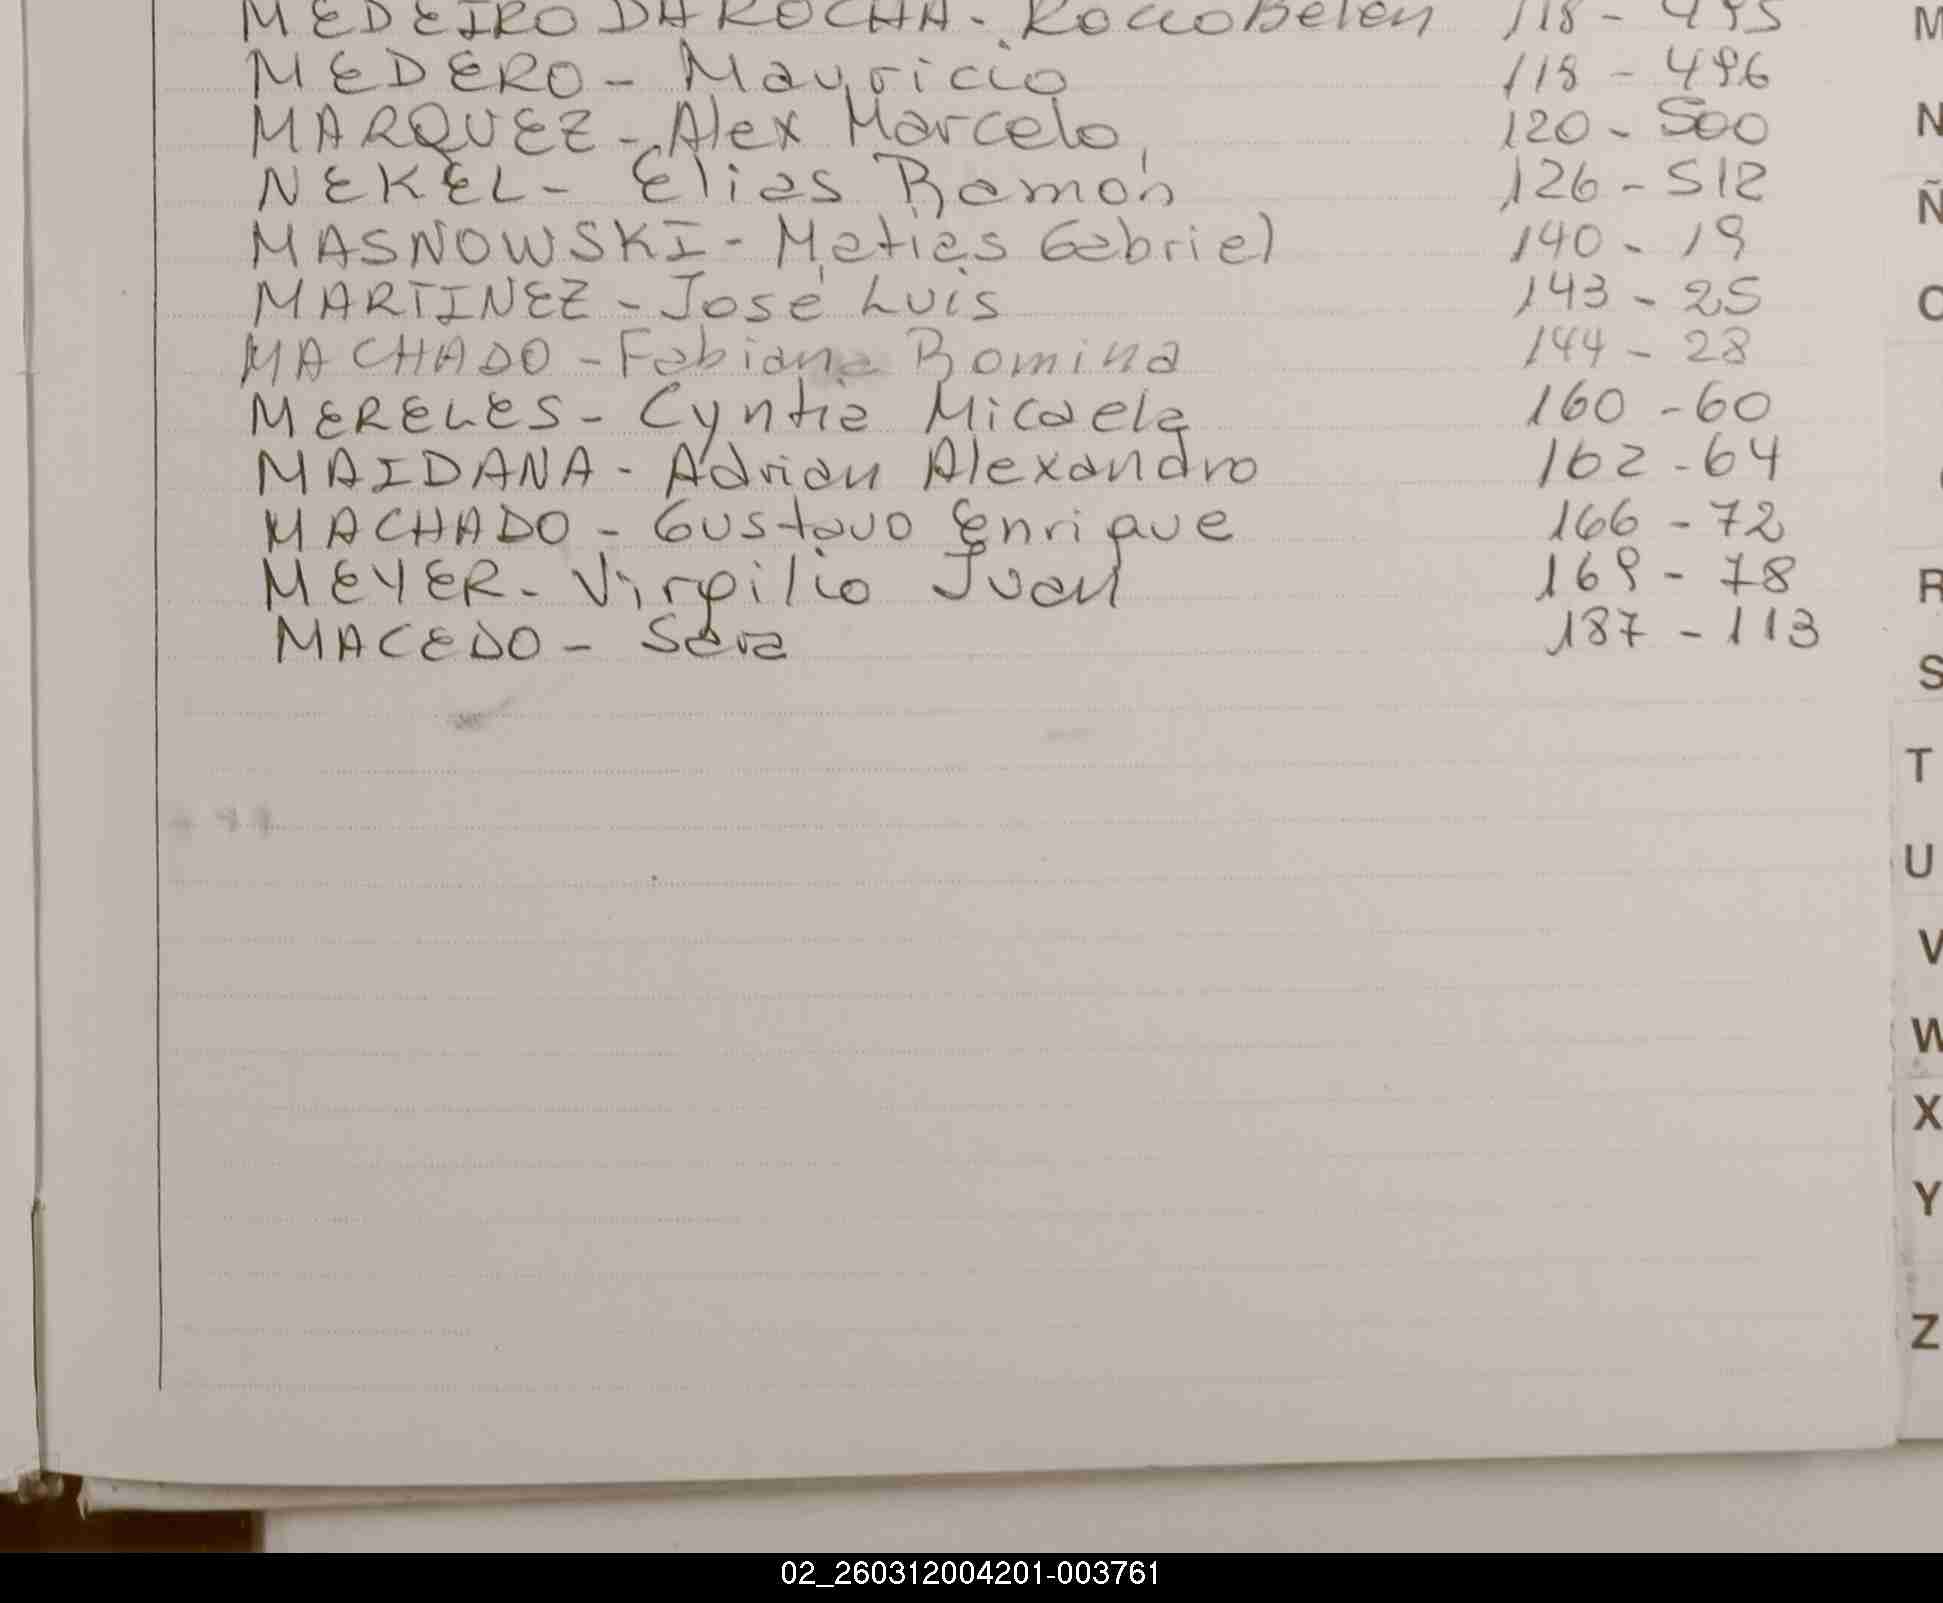 MEDEIRO DA ROCHA - Rocco Belen 118 - 495 M
MEDERO - Mauricio 118 - 496
MARQUEZ - Alex Marcelo 120 - 500 N
NEKEL - Elias Ramón 126 - 512 Ñ
MASNOWSKI - Matias Gabriel 140 - 19
MARTINEZ - José Luis 143 - 25 O
MACHADO - Fabiana Romina 144 - 28
MERELES - Cyntia Micaela 160 - 60
MAIDANA - Adrian Alexandro 162 - 64
MACHADO - Gustavo Enrique 166 - 72
MEYER - Virgilio Juan 169 - 78 R
MACEDO - Sara 187 - 113
S
T
U
V
W
X
Y
Z
02_260312004201-003761